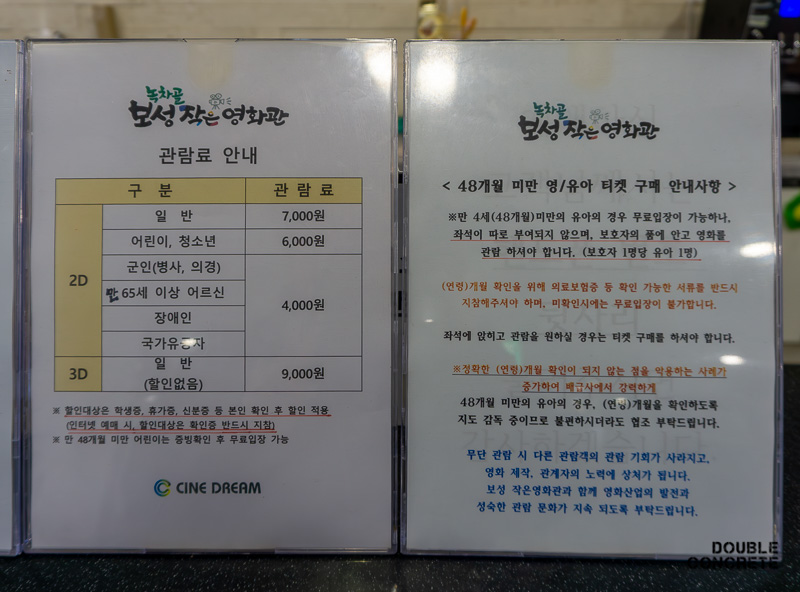 녹차골
보성 작은 영화관
관람료 안내
구 분 관 람 료
2D
일 반 7,000원
어린이, 청소년 6,000원
군인(병사, 의경)
만 65세 이상 어르신
장애인
국가유공자
4,000원
3D
일 반
(할인없음)
9,000원
※ 할인대상은 학생증, 휴가증, 신분증 등 본인 확인 후 할인 적용
(인터넷 예매 시, 할인대상은 확인증 반드시 지참)
※ 만 48개월 미만 어린이는 증빙확인 후 무료입장 가능
CINE DREAM
녹차골
보성 작은 영화관
< 48개월 미만 영/유아 티켓 구매 안내사항 >
※만 4세(48개월)미만의 유아의 경우 무료입장이 가능하나,
좌석이 따로 부여되지 않으며, 보호자의 품에 안고 영화를
관람 하셔야 합니다. (보호자 1명당 유아 1명)
(연령)개월 확인을 위해 의료보험증 등 확인 가능한 서류를 반드시
지참해주셔야 하며, 미확인시에는 무료입장이 불가합니다.
좌석에 앉히고 관람을 원하실 경우는 티켓 구매를 하셔야 합니다.
※정확한 (연령)개월 확인이 되지 않는 점을 악용하는 사례가
증가하여 배급사에서 강력하게
48개월 미만의 유아의 경우, (연령)개월을 확인하도록
지도 감독 중이므로 불편하시더라도 협조 부탁드립니다.
무단 관람 시 다른 관람객의 관람 기회가 사라지고,
영화 제작, 관계자의 노력에 상처가 됩니다.
보성 작은영화관과 함께 영화산업의 발전과
성숙한 관람 문화가 지속 되도록 부탁드립니다.
DOUBLE
CONCRETE